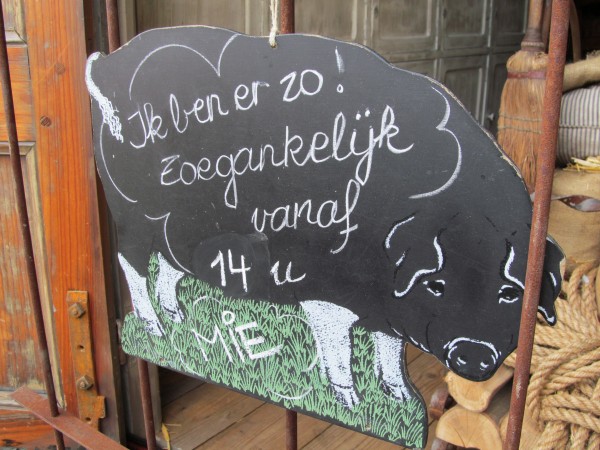 Ik ben er zo!
Zoegankelijk
vanaf
14 u
MiE